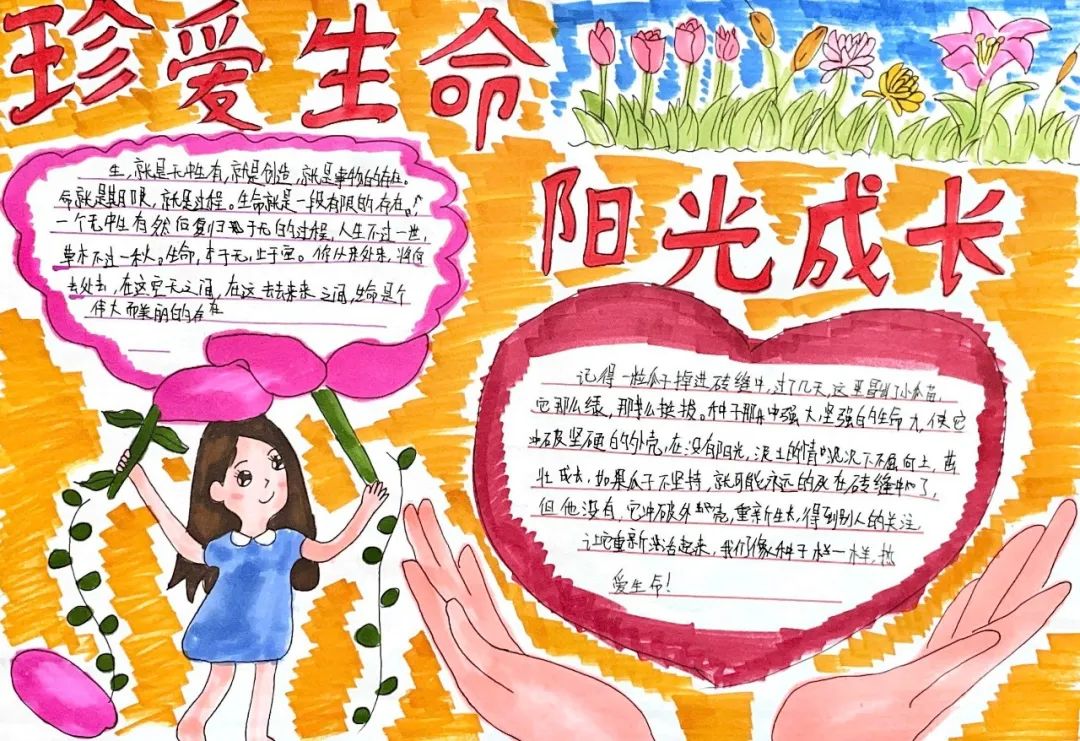 珍爱生命
生，就是无中生有，就是创造，就是事物的存在。
命就是期限，就是过程。生命就是一段有限的存在。
一个无中生有然后复归于无的过程，人生不过一世，
草木不过一秋。生命，本于无，止于空。你从来处来，将向
去处去，在这空天之间，在这去去来来之间，生命是个
伟大而美丽的存在
阳光成长
记得一粒瓜子掉进砖缝中，过了几天，这里冒出了小瓜苗，
它那么绿，那么挺拔。种子那种强大坚强的生命力，使它
冲破坚硬的外壳，在没有阳光，泥土的情况下不屈向上，茁
壮成长，如果瓜子不坚持，就可能永远的死在砖缝中了，
但他没有，它冲破外壳，重新生长，得到别人的关注
让它重新活起来，我们像种子一样，热
爱生命！